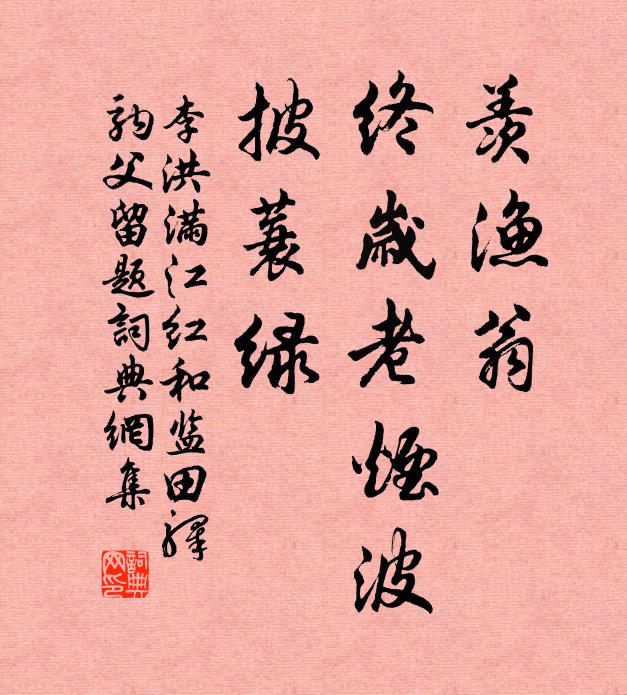 羡渔翁
终岁老烟波
披蓑绿
李洪满江红和监田驿
驹父留题词典网集
词典网印